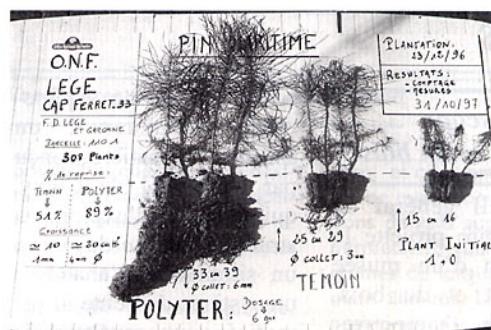 PIN MARITIME
O.N.F.
LEGE
CAP FERRET.33
F.D. LEGE
ET GARONNE
PARCELLE: 1101
308 Plants
% de reprise:
TEMOIN POLYTER
51% 89%
Croissance
≃ 10 ≃ 20 cm
1mm 4mm Ø
PLANTATION:
13/12/96
RESULTATS:
- COMPTAGE
- MESURES
31/10/97
33 cm 39
Ø COLLET: 6mm
25 cm 29
Ø COLLET: 3mm
15 cm 16
PLANT INITIAL
1+0
TEMOIN
POLYTER: DOSAGE